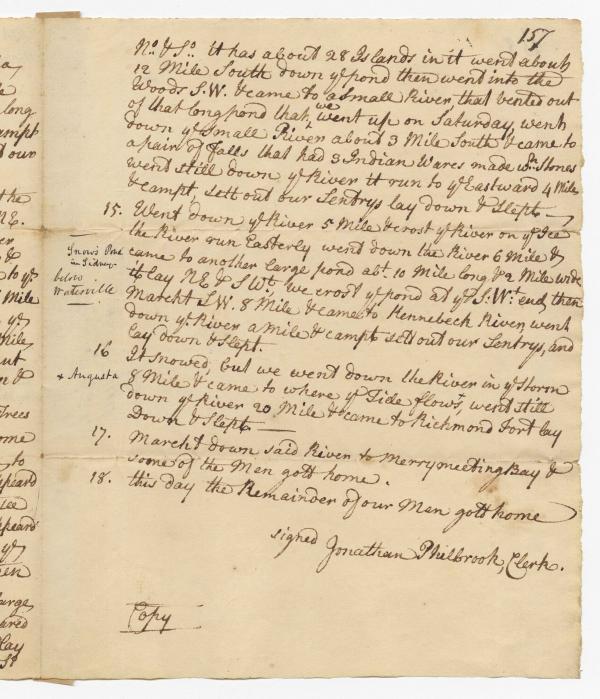 157
No. & So. it has about 28 Islands in it went about
12 Mile South down ye pond then went into the
Woods S.W. & came to a Small River that vented out
of that long pond that we went up on Saturday, went
down ye Small River about 3 Mile South & came to
a pair of falls that had 3 Indian Wares made wth Stones
went still down ye River it run to ye Eastward 4 Mile
& campt, sett out our Sentrys lay down & Slept
15. Went down ye River 5 Mile & crost ye River on ye Ice
the River run Easterly went down the River 6 Mile &
came to another large pond abt. 10 Mile long & 2 Mile wide
it lay NE & SWt. we crost ye pond at ye S:Wt. end, then
Marcht S.W. 8 Mile & came to Kennebeck River, went
down ye River a Mile & campt sett out our Sentrys, and
lay down & Slept.
Snow's Pond
in Sidney
below
Watervill
16 It Snowed, but we went down the River in ye Storm
8 Mile & came to where ye Tide flows, went still
down ye River 20 Mile & came to Richmond Fort lay
Down & Slept
+ Augusta
17. Marcht down said River to Merrymeeting Bay &
some of the Men gott home.
18. this day the Remainder of our Men gott home
signed Jonathan Philbrook, Clerk.
Copy